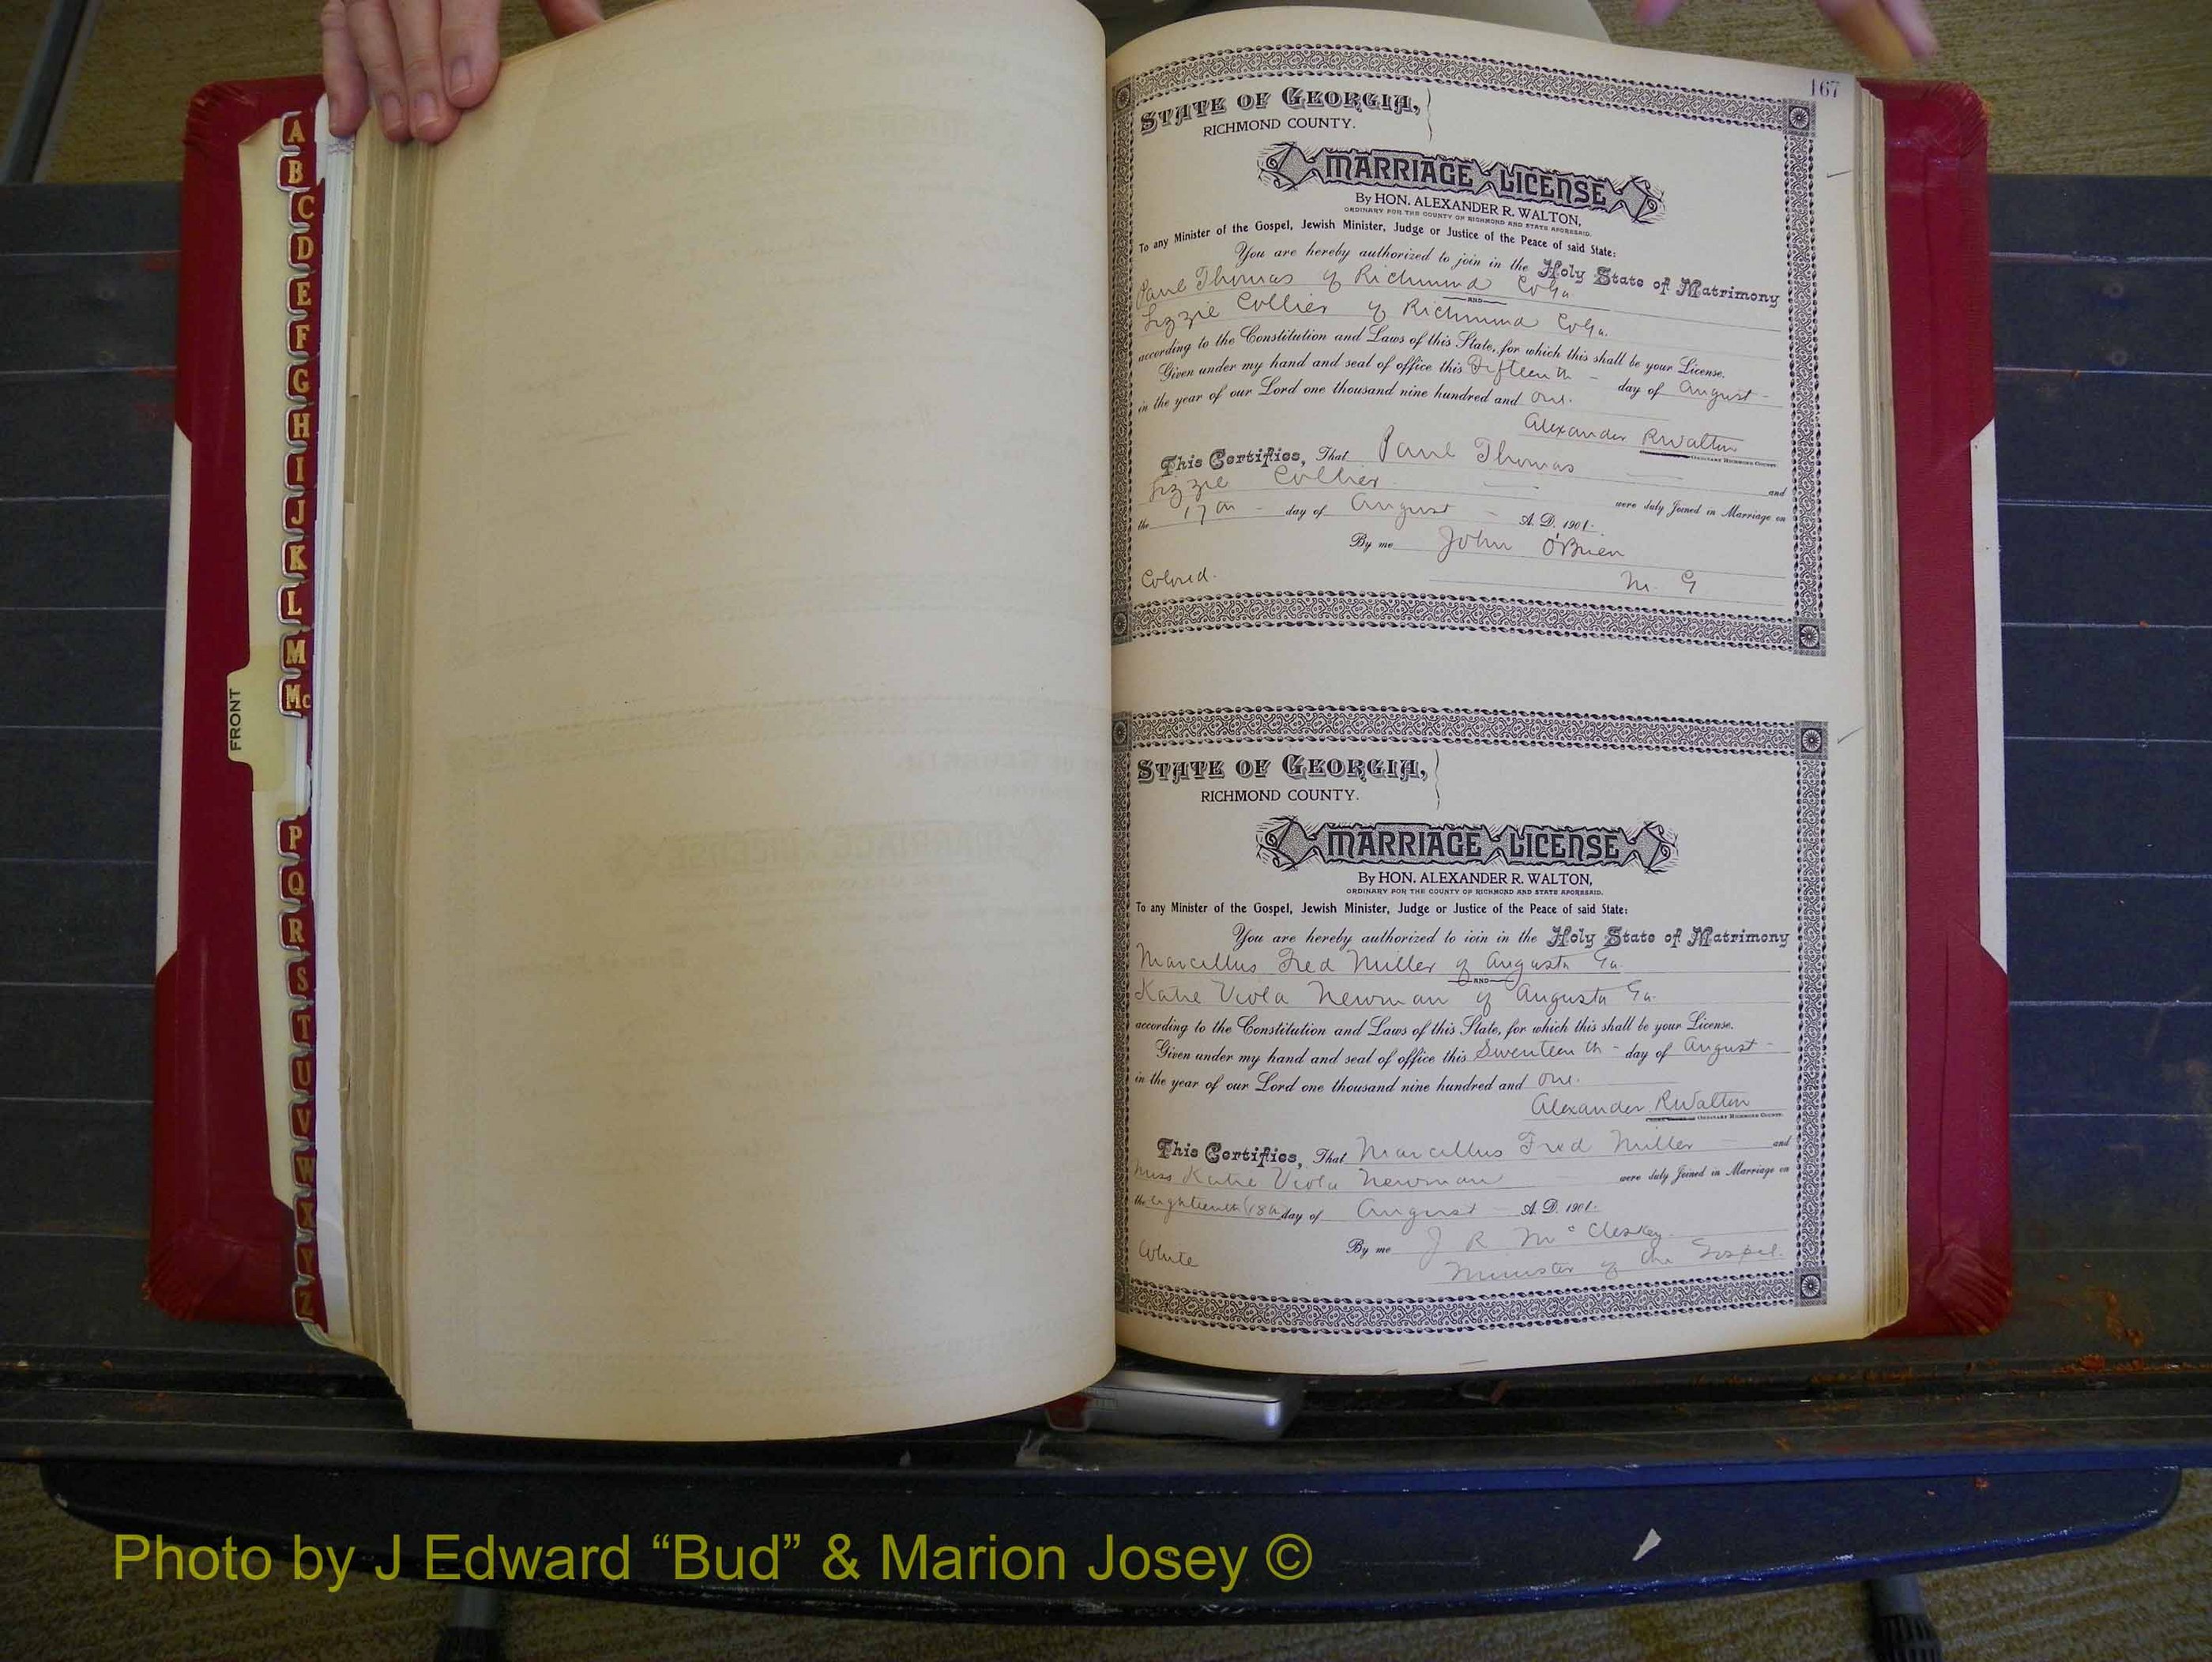 A
B
C
D
E
F
G
H
I
J
K
L
M
Mc
FRONT
P
Q
R
S
T
U
V
W
X
Y
Z
167
STATE OF GEORGIA,
RICHMOND COUNTY.
MARRIAGE LICENSE
By HON. ALEXANDER R. WALTON,
ORDINARY FOR THE COUNTY OF RICHMOND AND STATE AFORESAID.
To any Minister of the Gospel, Jewish Minister, Judge or Justice of the Peace of said State:
You are hereby authorized to join in the Holy State of Matrimony
Paul Thomas of Richmond Co Ga.
AND
Lizzie Collier of Richmond Co Ga.
according to the Constitution and Laws of this State, for which this shall be your License.
Given under my hand and seal of office this Fifteenth - day of August -
in the year of our Lord one thousand nine hundred and one.
Alexander R Walton
ORDINARY RICHMOND COUNTY.
This Certifies, That Paul Thomas and
Lizzie Collier were duly Joined in Marriage on
the 17th - day of August - A. D. 1901.
By me John O'Brien
Colored. M. G
STATE OF GEORGIA,
RICHMOND COUNTY.
MARRIAGE LICENSE
By HON. ALEXANDER R. WALTON,
ORDINARY FOR THE COUNTY OF RICHMOND AND STATE AFORESAID.
To any Minister of the Gospel, Jewish Minister, Judge or Justice of the Peace of said State:
You are hereby authorized to join in the Holy State of Matrimony
Marcellus Fred Miller of Augusta Ga.
AND
Katie Viola Newman of Augusta Ga.
according to the Constitution and Laws of this State, for which this shall be your License.
Given under my hand and seal of office this Seventeenth - day of August -
in the year of our Lord one thousand nine hundred and one.
Alexander R Walton
ORDINARY RICHMOND COUNTY.
This Certifies, That Marcellus Fred Miller and
Miss Katie Viola Newman were duly Joined in Marriage on
the eighteenth (18th day of August - A. D. 1901.
By me J R McCleskey
White Minister of the Gospel.
Photo by J Edward “Bud” & Marion Josey ©